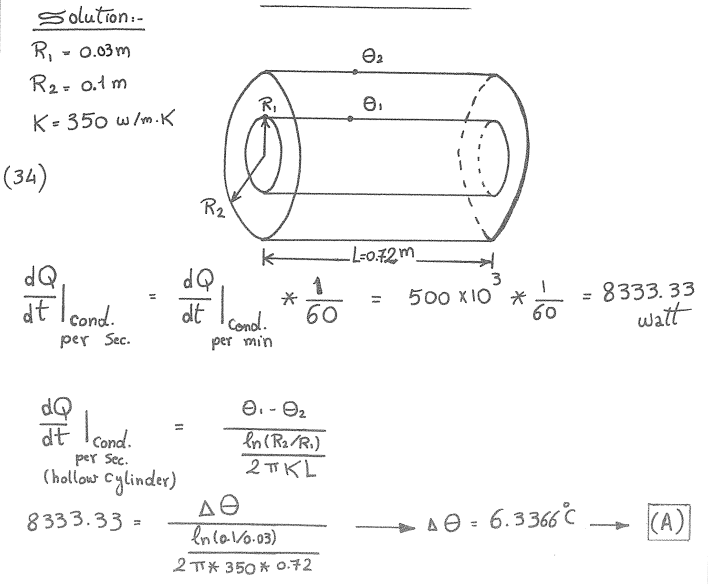 Solution:-
R₁ = 0.03m
R₂ = 0.1 m
K = 350 w/m.K
(34)
θ₂
θ₁
R₁
R₂
L=0.72m
dQ/dt |cond. per Sec. = dQ/dt |Cond. per min * 1/60 = 500 x10³ * 1/60 = 8333.33 watt
dQ/dt |Cond. per Sec. (hollow Cylinder) = θ₁ - θ₂ / ln(R₂/R₁) / 2πKL
8333.33 = Δθ / ln(0.1/0.03) / 2π* 350 * 0.72 → Δθ = 6.3366°C → (A)